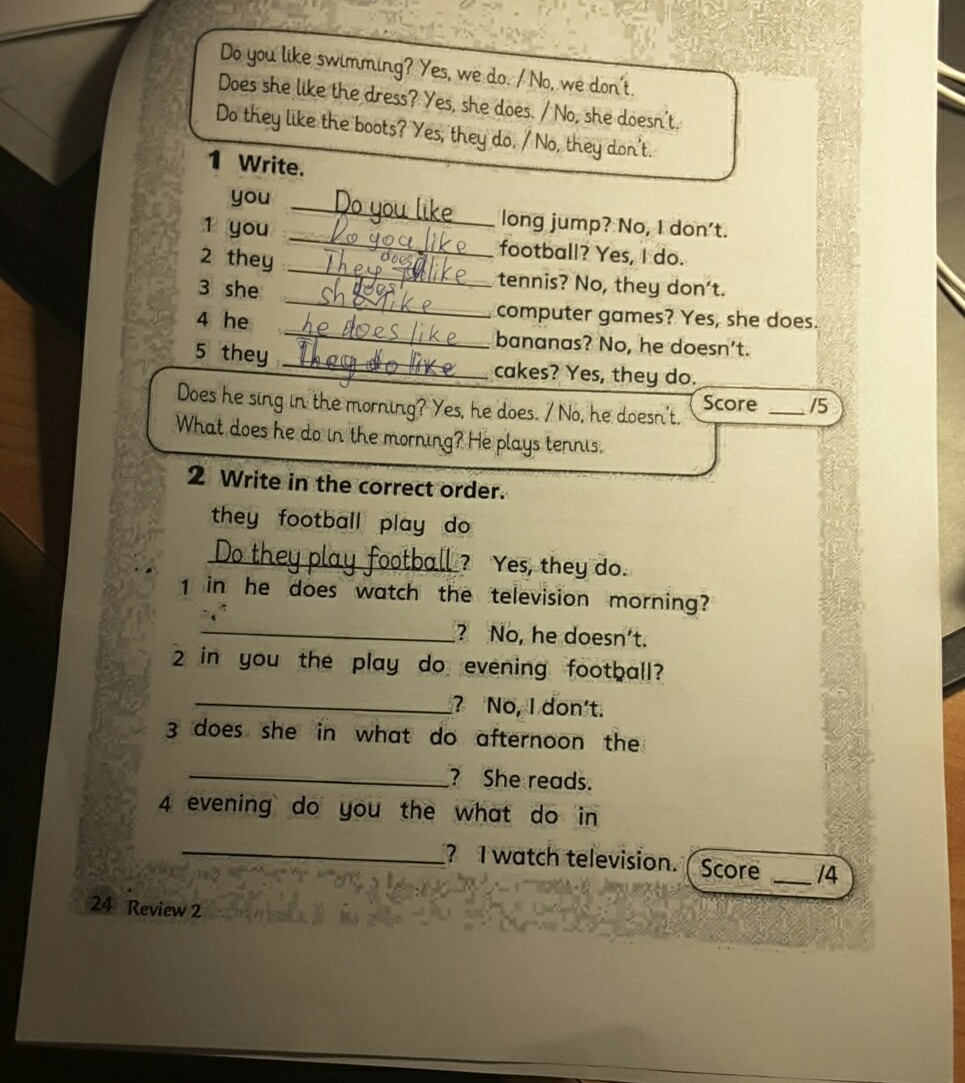 Do you like swimming? Yes, we do. / No, we don't.
Does she like the dress? Yes, she does. / No, she doesn't.
Do they like the boots? Yes, they do. / No, they don't.
1 Write.
you Do you like long jump? No, I don't.
1 you Do you like football? Yes, I do.
2 they They does like tennis? No, they don't.
3 she she does like computer games? Yes, she does.
4 he he does like bananas? No, he doesn't.
5 they They do like cakes? Yes, they do.
Score ___ /5
Does he sing in the morning? Yes, he does. / No, he doesn't.
What does he do in the morning? He plays tennis.
2 Write in the correct order.
they football play do
Do they play football? Yes, they do.
1 in he does watch the television morning?
? No, he doesn't.
2 in you the play do evening football?
? No, I don't.
3 does she in what do afternoon the
? She reads.
4 evening do you the what do in
? I watch television.
Score ___ /4
24 Review 2